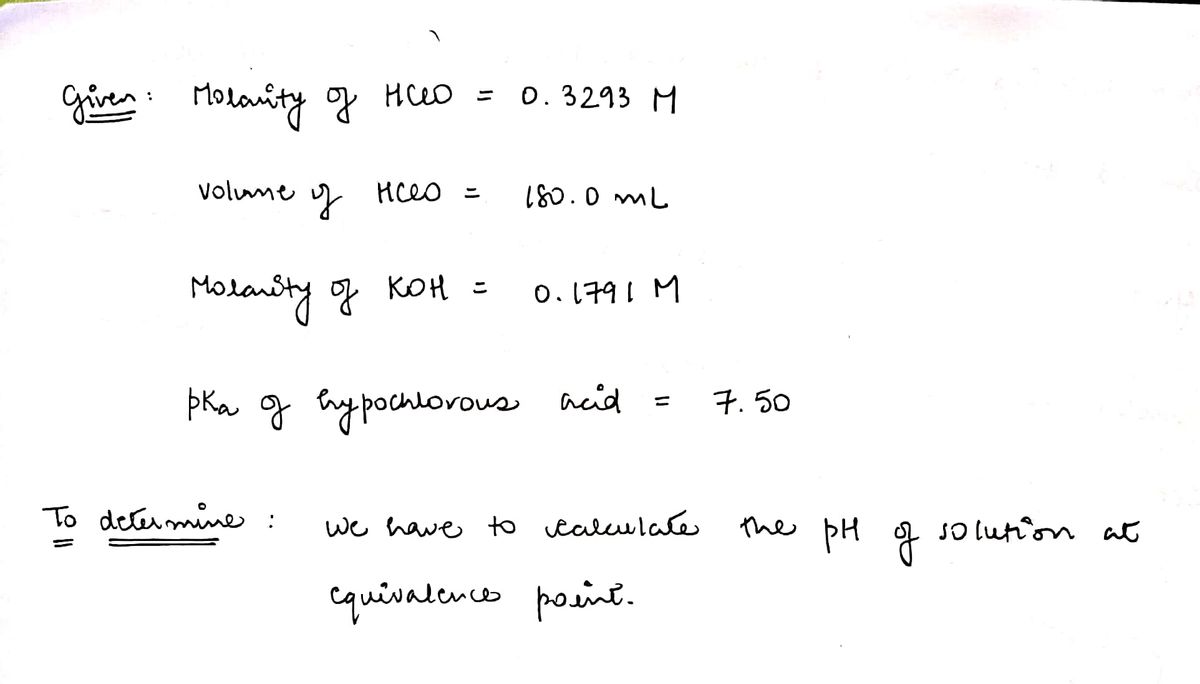 Given : Molarity of HClO = 0.3293 M
volume of HClO = 180.0 mL
Molarity of KOH = 0.1791 M
pKa of hypochlorous acid = 7.50
To determine : we have to calculate the pH of solution at
equivalence point.